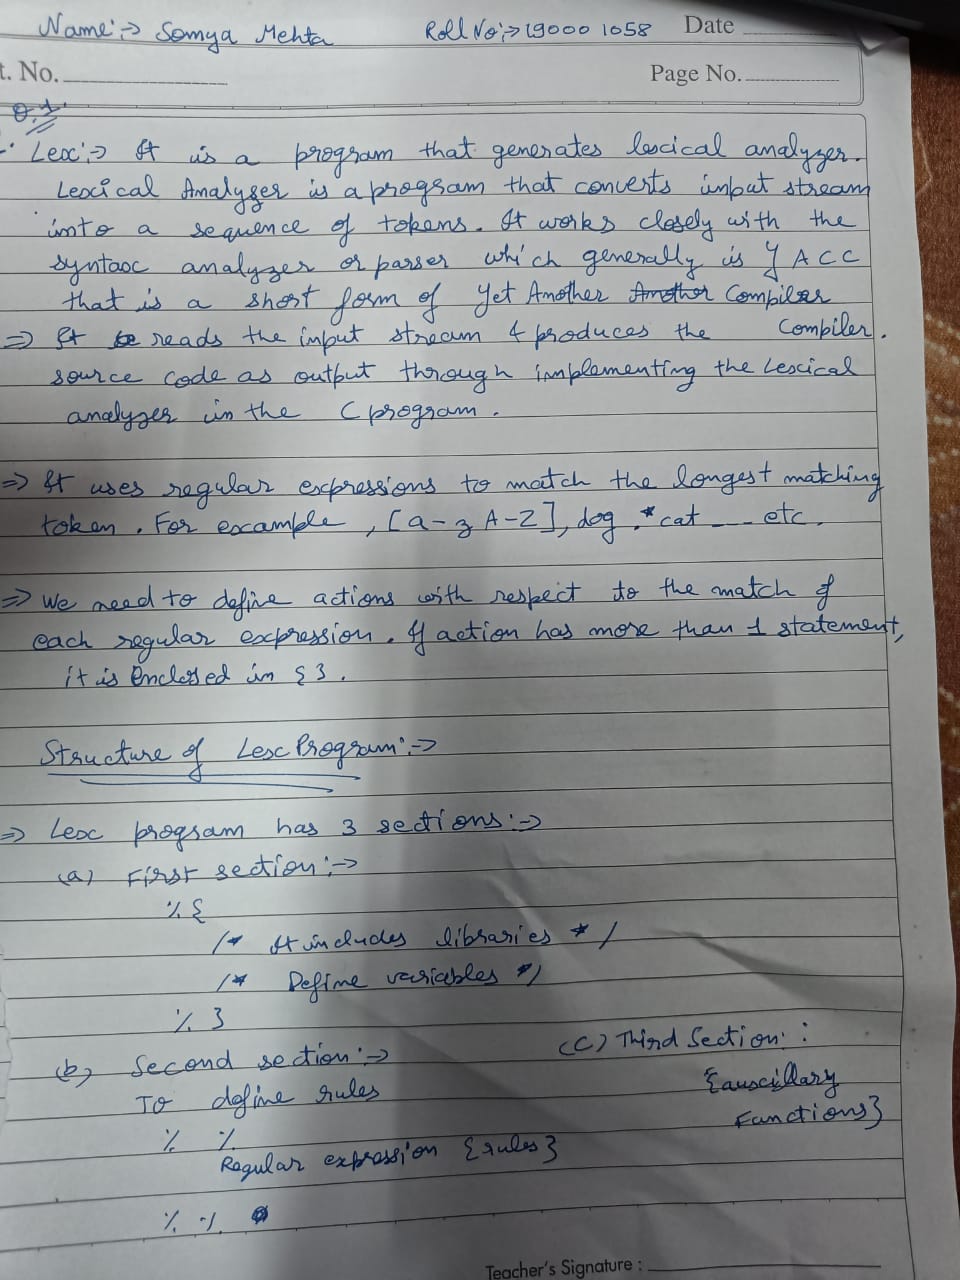 Name:-> Somya Mehta Roll No:-> 19000 1058 Date
t. No. Page No.
Q.1.
Lex:-> It is a program that generates lexical analyzer.
Lexical Analyzer is a program that converts input stream
into a sequence of tokens. It works closely with the
syntax analyzer or parser which generally is YACC
that is a short form of Yet Another Another Compiler
Compiler.
=> It reads the input stream & produces the
source code as output through implementing the Lexical
analyzer in the C program.
=> It uses regular expressions to match the longest matching
token. For example, [a-z A-Z], dog.*cat --- etc.
=> We need to define actions with respect to the match of
each regular expression. If action has more than 1 statement,
it is enclosed in { }.
Structure of Lex Program:->
=> Lex program has 3 sections:->
(a) First section:->
% {
/* It includes libraries */
/* Define variables */
% }
(b) Second section:->
To define rules
% %
Regular expression {rules}
% %
(C) Third Section:
{auxcillary
Functions}
Teacher's Signature :